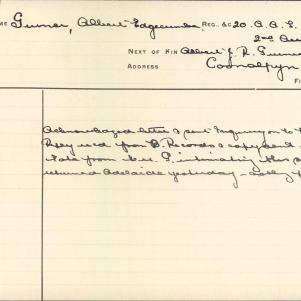 ME Gurner, Albert Edgecumbe REG. &C 20. A.A.S.
2nd Aus
NEXT OF KIN Albert J. R. Gurner
ADDRESS Coonalpyn
Acknowledged letter & sent Inquiry on to
Reply recd from B. Records & copy sent
Note from Mr. G. intimating this
returned Adelaide yesterday